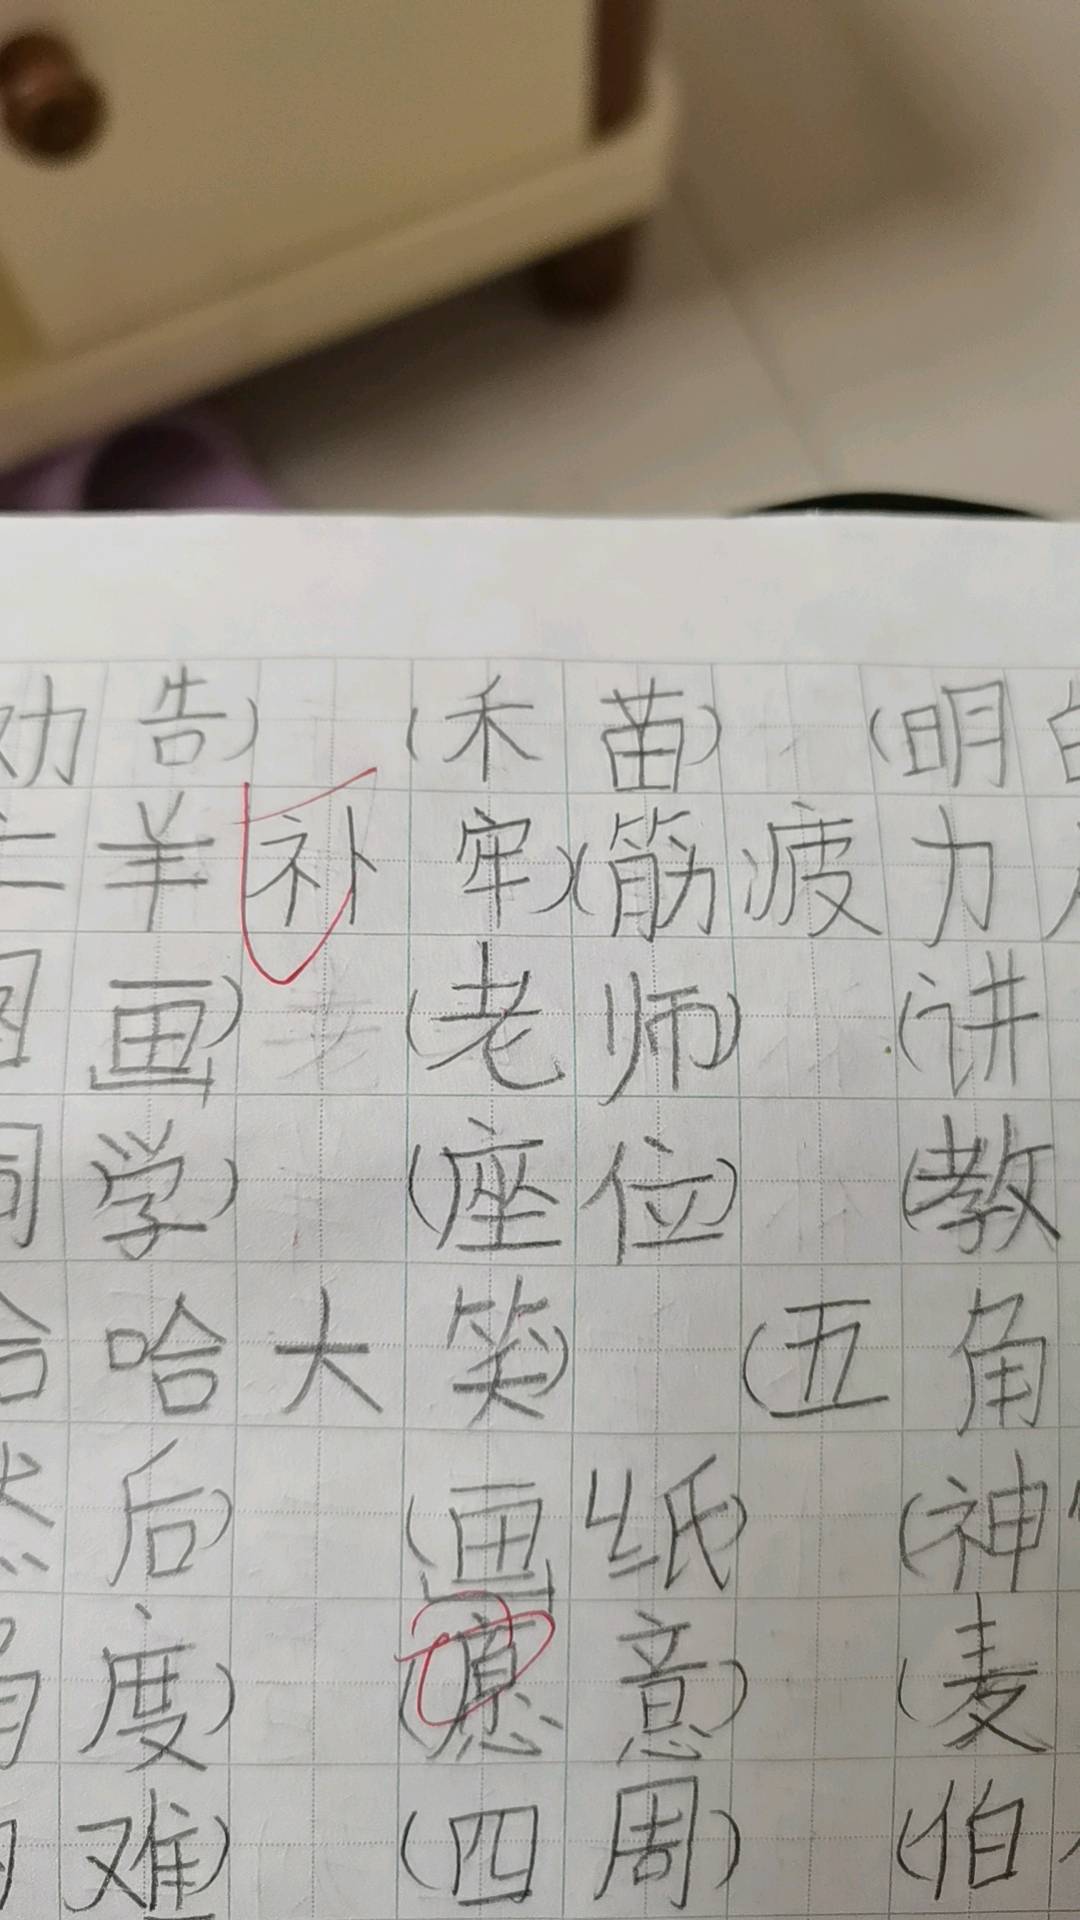 劝告) (禾苗) (明白
亡羊补牢) (筋疲力
图画) (老师) (讲
同学) (座位) (教
哈哈大笑) (五角
然后) (画纸) (神
角度) (愿意) (麦
难) (四周) (伯